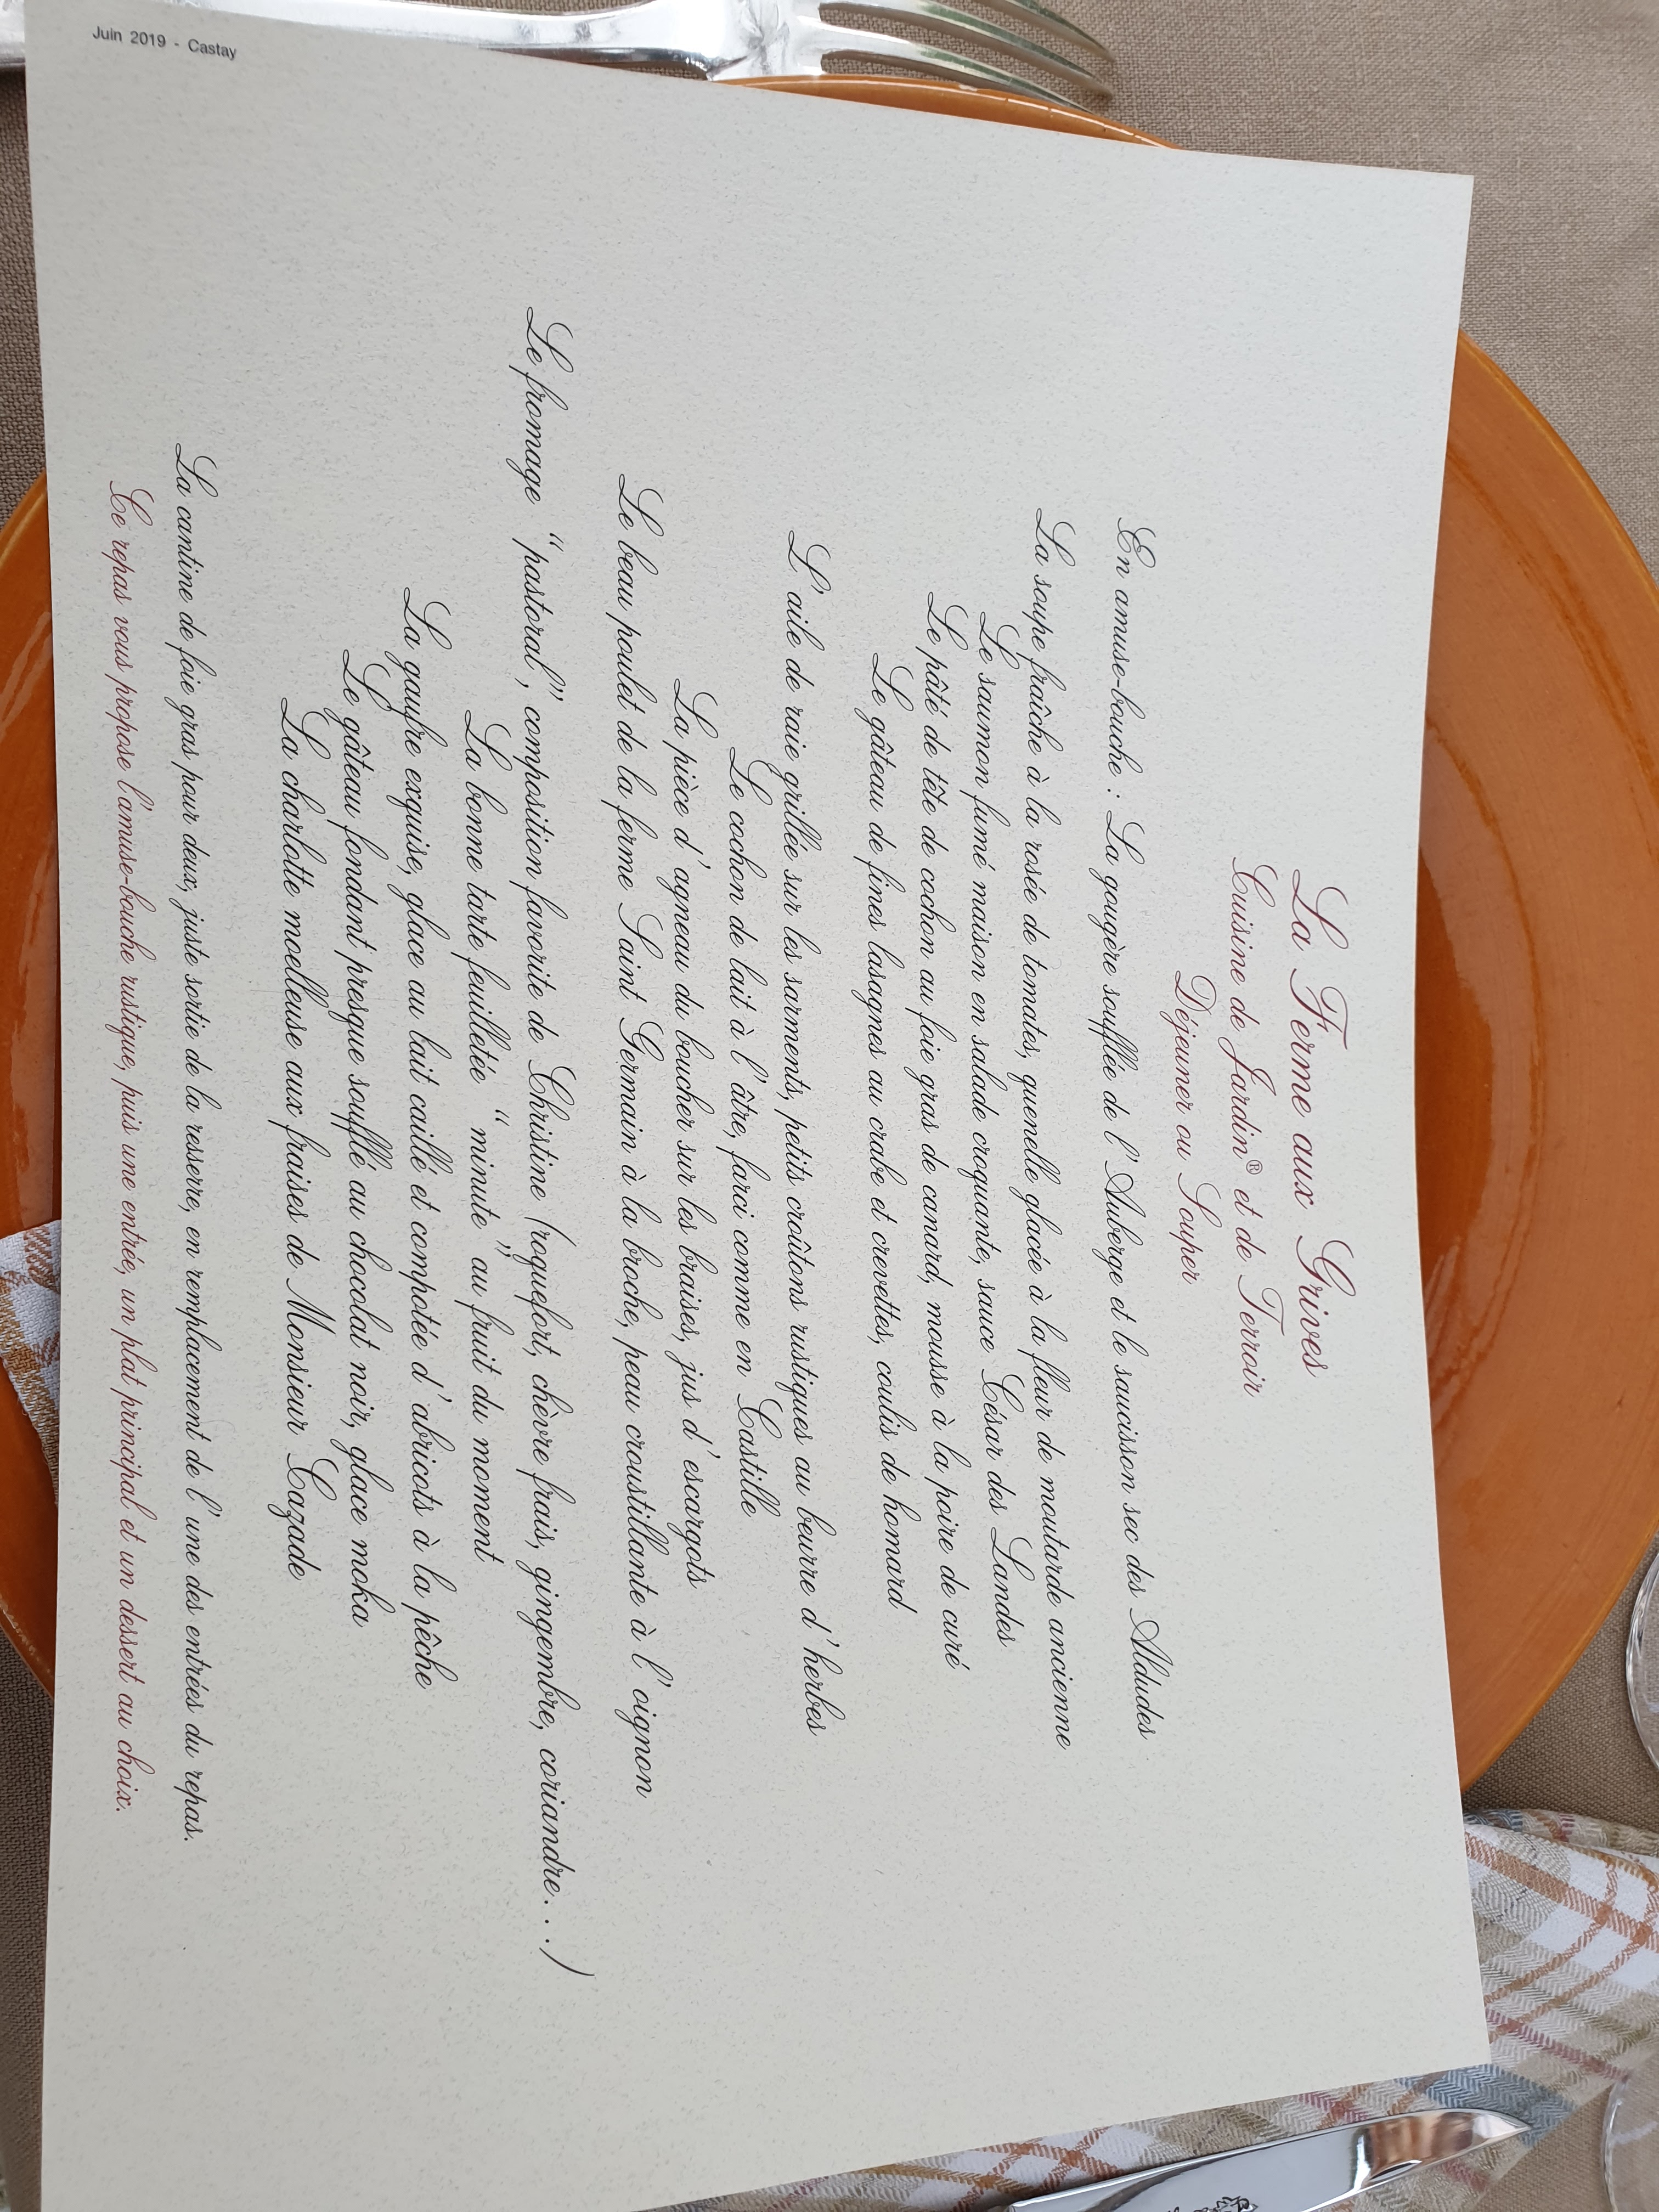 La Ferme aux Grives
Cuisine de Jardin® et de Terroir
Déjeuner ou Souper
En amuse-bouche : La gougère soufflée de l'Auberge et le saucisson sec des Aldudes
La soupe fraîche à la rosée de tomates, quenelle glacée à la fleur de moutarde ancienne
Le saumon fumé maison en salade croquante, sauce César des Landes
Le pâté de tête de cochon au foie gras de canard, mousse à la poire de curé
Le gâteau de fines lasagnes au crabe et crevettes, coulis de homard
L'aile de raie grillée sur les sarments, petits croûtons rustiques au beurre d'herbes
Le cochon de lait à l'âtre, farci comme en Castille
La pièce d'agneau du boucher sur les braises, jus d'escargots
Le beau poulet de la ferme Saint Germain à la broche, peau croustillante à l'oignon
Le fromage "pastoral", composition favorite de Christine (roquefort, chèvre frais, gingembre, coriandre...)
La bonne tarte feuilletée "minute" au fruit du moment
La gaufre exquise, glace au lait caillé et compotée d'abricots à la pêche
Le gâteau fondant presque soufflé au chocolat noir, glace moka
La charlotte moelleuse aux fraises de Monsieur Cazade
La cantine de foie gras pour deux, juste sortie de la resserre, en remplacement de l'une des entrées du repas.
Ce repas vous propose l'amuse-bouche rustique, puis une entrée, un plat principal et un dessert au choix.
Juin 2019 - Castay